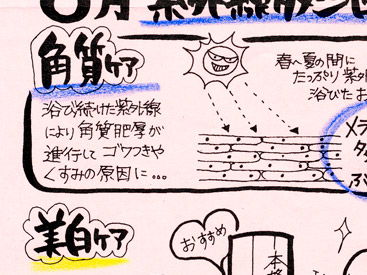 6月 紫外線ダメージ
角質ケア
浴び続けた紫外線
により角質肥厚が
進行して ゴワつきや
くすみの原因に…
春〜夏の間に
たっぷり紫外
浴びたお
メラ
美白ケア
おすすめ
本格